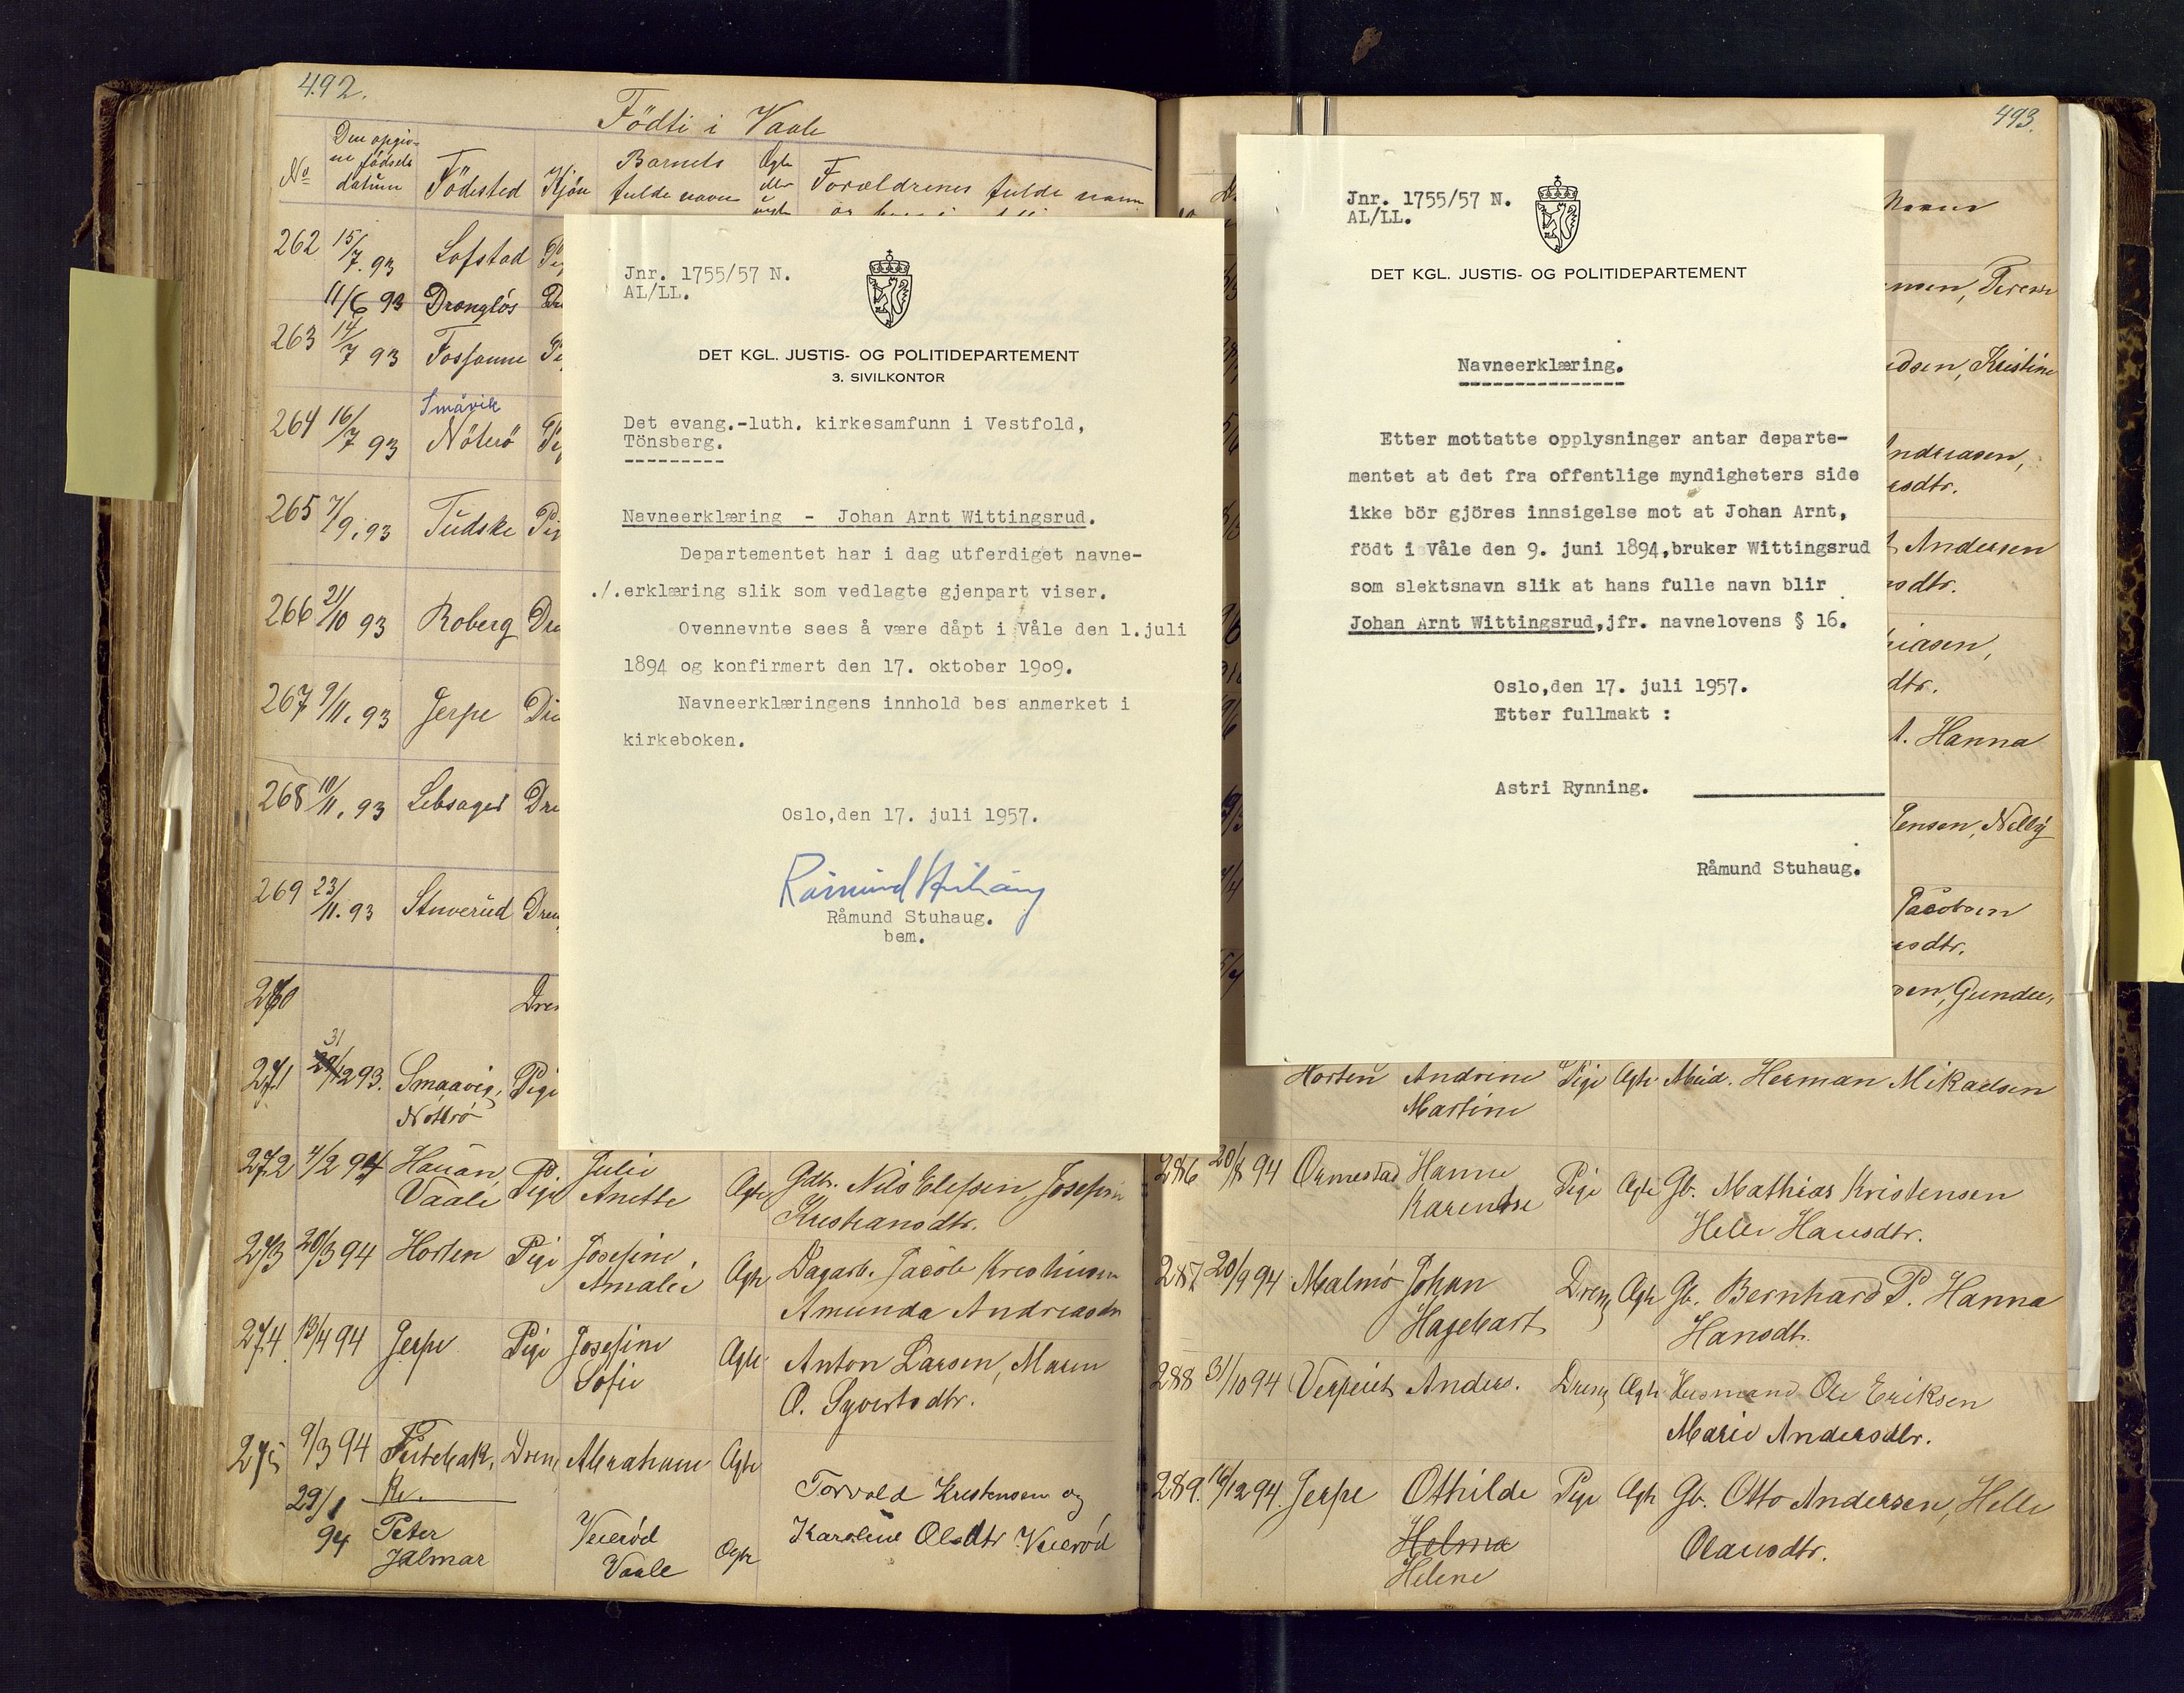 492.
Födti i Vaale
No
Den opgiv-
ne födsels
datum
Födested
Kjön
Barnets
fulde navn
Ægte
eller
uægte
Forældrenes fulde navn
262 15/7.93 Lofstad
11/6 93 Dronglös
263 14/7 93
264 16/7 93 Smävik Nöterö
265 7/9.93 Tudske
266 21/10 93 Roberg
267 9/11.93 Jerpe
268 10/11.93
269 23/11.93 Stuverud
270
271 31 29/12 93. Smaavig, Nötterö Pige
272 4/2 94 Hauan, Vaale Pige Julie Anette Ægte Gdbr. Nils Elefsen, Josefin
Kristiansdtr.
273 20/3 94 Horten Pige Josefine Amalie Ægte Dagarb. Jacob Kristiansen
Amunda Andreasdtr
274 13/4 94 Jerpe Pige Josefine Sofie Ægte Anton Larsen, Maren
O. Syvertsdtr.
275 9/3 94 Dreng Abraham Ægte
29/1 94 Peter Jalmar Veierød Vaale Ægte Torvald Kristensen og
Karoline Olsdtr Veierød
Jnr. 1755/57 N.
AL/LL.
DET KGL. JUSTIS- OG POLITIDEPARTEMENT
3. SIVILKONTOR
Det evang.-luth. kirkesamfunn i Vestfold,
Tönsberg.
Navneerklæring - Johan Arnt Wittingsrud.
Departementet har i dag utferdiget navne-
./.erklæring slik som vedlagte gjenpart viser.
Ovennevnte sees å være dåpt i Våle den 1.juli
1894 og konfirmert den 17. oktober 1909.
Navneerklæringens innhold bes anmerket i
kirkeboken.
Oslo,den 17. juli 1957.
Råmund Stuhaug
Råmund Stuhaug.
bem.
493.
Jnr. 1755/57 N.
AL/LL.
DET KGL. JUSTIS- OG POLITIDEPARTEMENT
Navneerklæring.
Etter mottatte opplysninger antar departe-
mentet at det fra offentlige myndigheters side
ikke bör gjöres innsigelse mot at Johan Arnt,
födt i Våle den 9. juni 1894,bruker Wittingsrud
som slektsnavn slik at hans fulle navn blir
Johan Arnt Wittingsrud,jfr. navnelovens § 16.
Oslo,den 17. juli 1957.
Etter fullmakt :
Astri Rynning.
Råmund Stuhaug.
Kristine
Andreasen,
Andersen
Hanna
Jensen, Nelly
Jacobsen
Horten Andrine Martine Pige Ægte Herman Mikaelsen
286 20/8 94 Ormestad Hanne Pige Ægte Gb. Mathias Kristensen
Helle Hansdtr.
287 20/9 94 Malmö Johan Hagebart Dreng Ægte Gb. Bernhard P. Hanna
Hansdtr.
288 31/10 94 Anders. Dreng Ægte Husmand Ole Eriksen
Marie Andersdtr.
289. 16/12 94. Jerpe Othilde Helma Helene Pige Ægte Gb. Otto Andersen, Helle
Olausdtr.